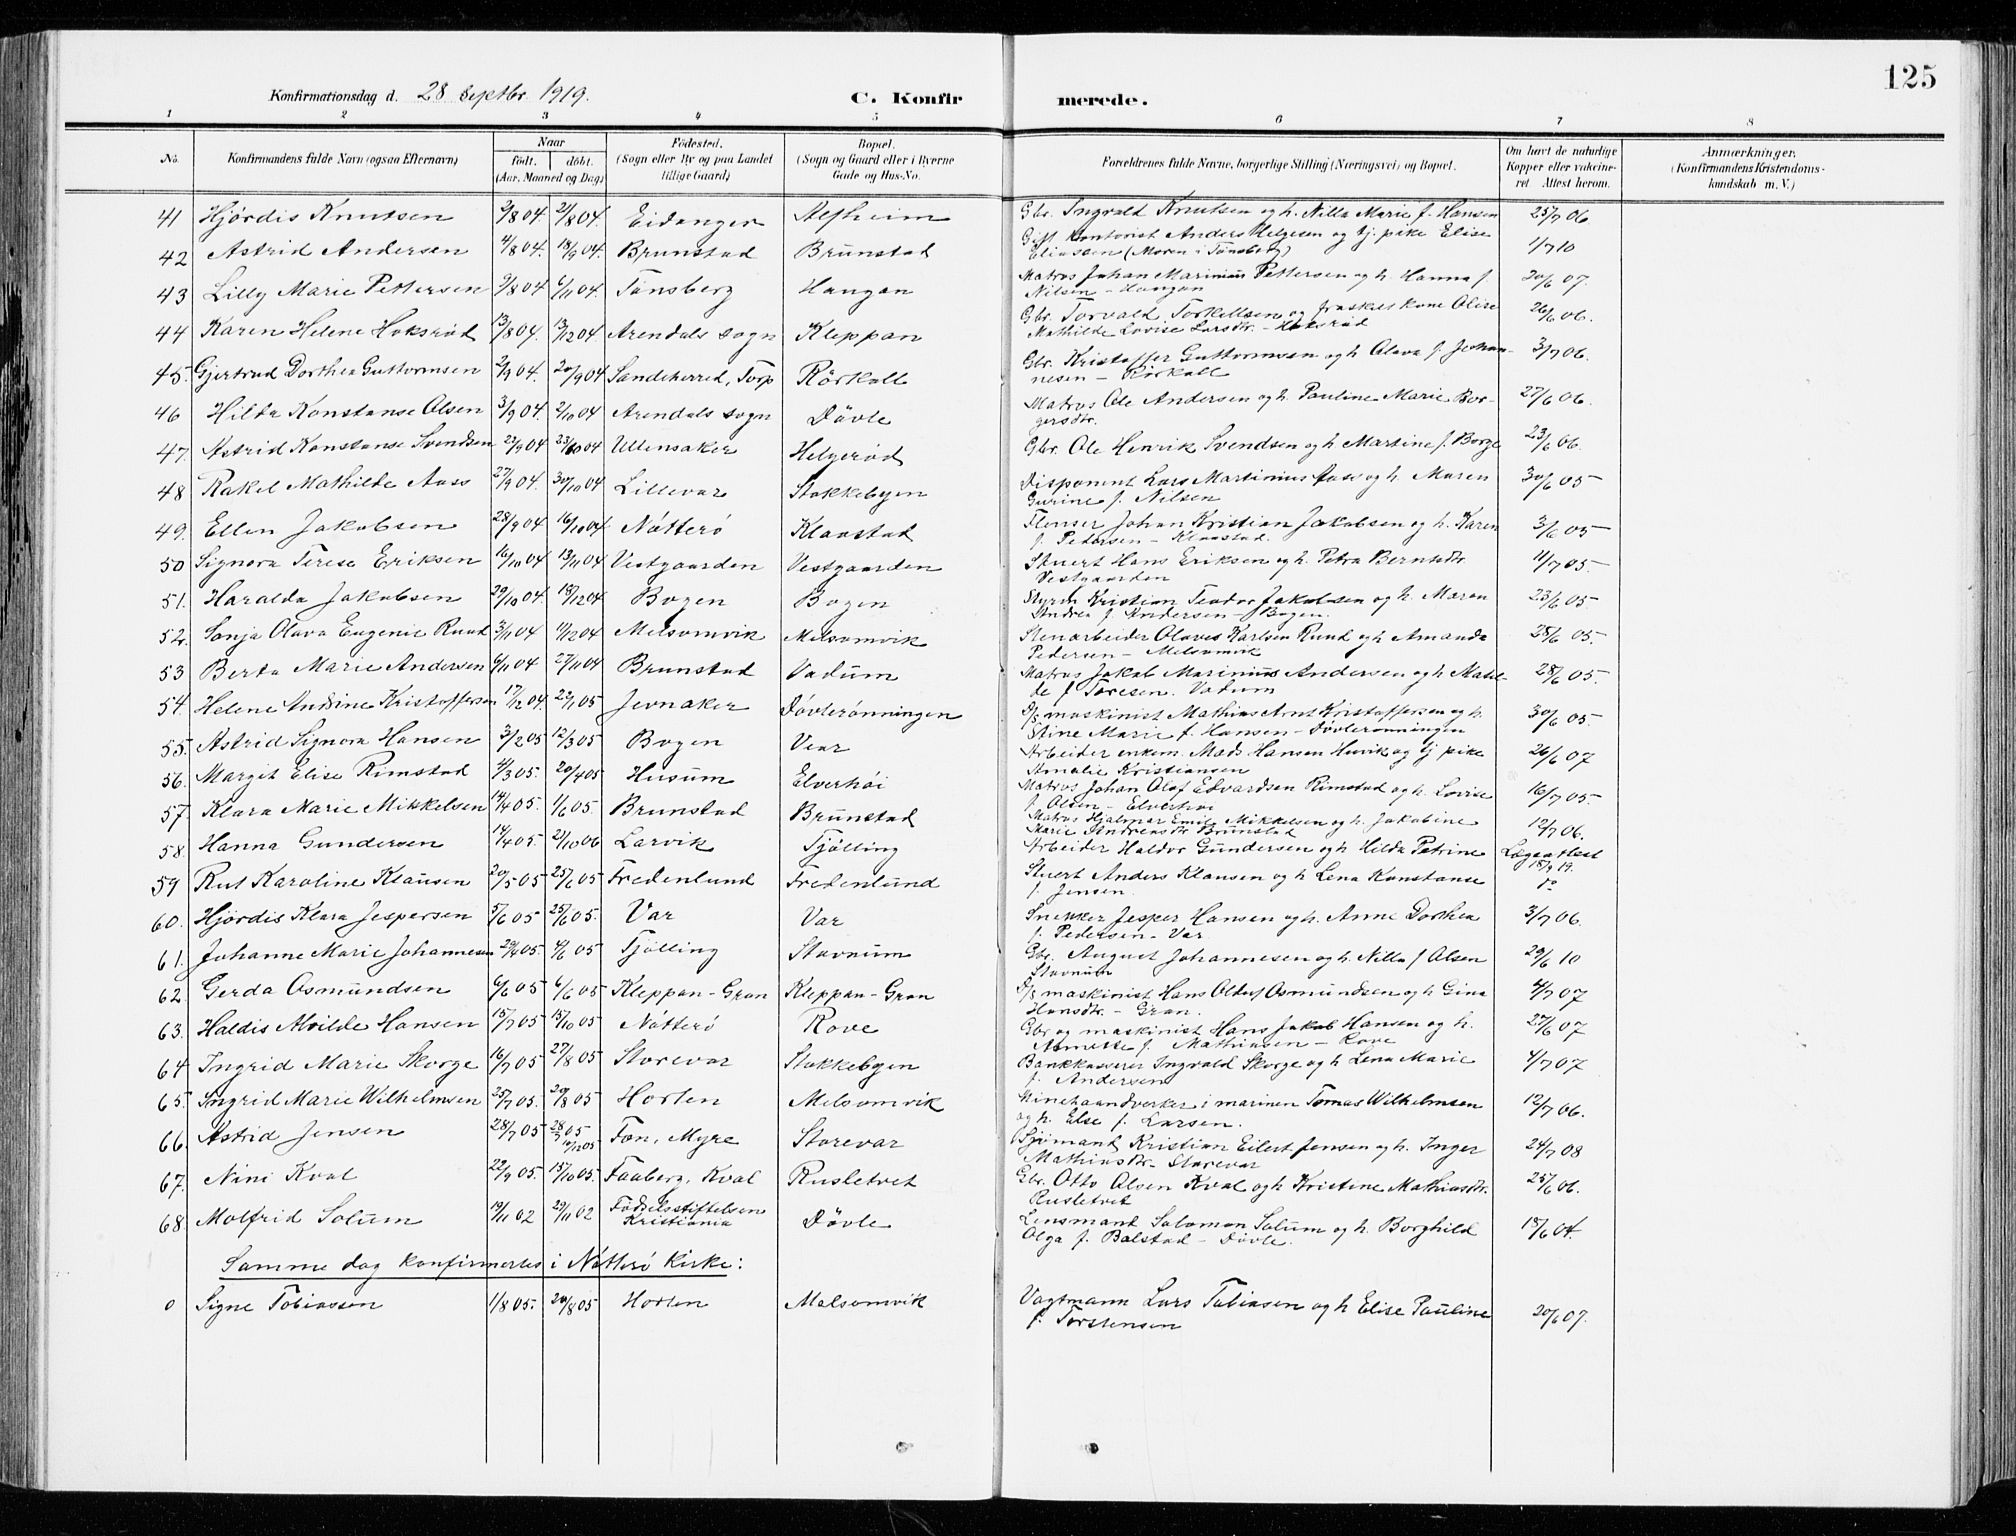 125
Konfirmationsdag d. 28 Septbr. 1919. C. Konfirmerede.
1 2 3 4 5 6 7 8
No. Konfirmandens fulde Navn (ogsaa Efternavn) Naar født. døbt. (Aar, Maaned og Dag) Fødested. (Sogn eller By og paa Landet tillige Gaard) Bopæl. (Sogn og Gaard eller i Byerne Gade og Hus-No. Forældrenes fulde Navne, borgerlige Stilling (Næringsvei) og Bopæl. Om havt de naturlige Kopper eller vakcineret. Attest herom. Anmærkninger. (Konfirmandens Kristendomskundskab m. V.)
41 Hjørdis Knutsen 2/8 04 21/8 04. Eidanger Alfheim Gbr. Ingvald Knutsen og h. Nilla Marie f. Hansen 25/7 06
42 Astrid Andersen 4/8 04. 18/9 04. Brunstad Brunstad Gift kontorist Anders Helgesen og tj. pike Elise
Eliassen (Moren i Tønsberg) 1/7 10
43 Lilly Marie Pettersen 9/8 04 6/11 04. Tønsberg Haugan Matros Johan Marinius Pettersen og h. Hanna f.
Nilsen - Haugan 20/6 07.
44 Karen Helene Hoksrød 13/8 04. 13/12 04 Arendals sogn Kleppan Gbr. Torvald Torkellsen og fraskilt kone Olise
Mathilde Lovise Larsdtr. - Hoksrød 26/6 06.
45. Gjertrud Dorthea Guttormsen 2/9 04. 20/9 04 Sandeherred, Torp Rörkoll Gbr. Kristoffer Guttormsen og h Olava f. Johan-
nesen - Rörkoll 3/7 06.
46 Hilda Konstanse Olsen 3/9 04. 2/10 04 Arendals sogn Døvle Matros Ole Andersen og h. Pauline Marie Bor-
gersdtr. 27/6 06.
47. Astrid Konstanse Svendsen 23/9 04 23/10 04 Ullensaker Helgerød Gbr. Ole Henrik Svendsen og h Martine f. Borge 23/6 06.
48 Rakel Mathilde Aass 27/9 04. 30/10 04 Lillevar Stokkebyen Disponent Lars Martinius Aass og h. Maren
Gurine f. Nilsen 30/6 05
49. Ellen Jakobsen 28/9 04 16/10 04 Nötterö Klaastad Flenser Johan Kristian Jakobsen og h. Karen
f. Pedersen - Klaastad. 3/6 05
50 Signora Terese Eriksen 16/10 04 13/11 04 Vestgaarden Vestgaarden Stuert Hans Eriksen og h. Petra Berntsdtr.
Vestgaarden 11/7 05.
51. Haralda Jakobsen 29/10 04. 18/12 04 Bogen Bogen Styrm Kristian Teodor Jakobsen og h. Maren
Andrea f. Andersen - Bogen 23/6 05
52. Sonja Olava Eugenie Ruud 3/11 04 11/12 04 Melsomvik Melsomvik Stenarbeider Olaves Karlsen Ruud og h Amanda
Pedersen - Melsomvik 28/6 05.
53 Berta Marie Andersen 6/11 04 27/11 04 Brunstad Vadum Matros Jakob Marinius Andersen og h Matil-
de f. Toresen. Vadum 28/6 05.
54. Helene Andrine Kristoffersen 17/12 04. 22/1 05 Jevnaker Døvlerønningen D/s maskinist Mathias Arnt Kristoffersen og h.
Stine Marie f. Hansen - Døvlerønningen 30/6 05.
55. Astrid Signora Hansen 3/2 05 12/3 05 Bogen Vear Arbeider enkem. Mads Hansen Huvik og tj pike
Amalie Kristiansen 26/6 07
56. Margit Elise Rimstad 4/3 05. 20/4 05 Husum Elverhöi Matros Johan Olaf Edvardsen Rimstad og h. Lovise
f. Olsen - Elverhøi 16/7 05.
57. Klara Marie Mikkelsen 14/4 05. 1/6 05 Brunstad Brunstad Matros Hjalmar Emil Mikkelsen og h. Jakobine
Marie Andreasdtr Brunstad 12/7 06.
58. Hanna Gundersen 14/4 05. 21/10 06 Larvik Tjölling Arbeider Haldor Gundersen og h Hilda Petrine Lægeattest 15/9 19.
59 Rut Karoline Klausen 20/5 05 25/6 05 Fredenlund Fredenlund Stuert Anders Klausen og h Lena Konstanse
f. Jensen. do
60. Hjördis Klara Jespersen 5/6 05 25/6 05. Var Var Snekker Jesper Hansen og h. Anne Dorthea
f. Pedersen - Var 3/7 06.
61. Johanne Marie Johannesen 29/4 05. 4/6 05 Tjölling Stavnum Gbr. August Johannesen og h. Nilla f Olsen
Stavnum 29/6 10
62. Gerda Osmundsen 6/6 05 6/6 05 Kleppan-Gran Kleppan-Gran D/s maskinist Hans Oluf Osmundsen og h Gina
Hansdtr. - Gran. 4/7 07
63. Haldis Alvilde Hansen 15/7 05 15/10 05 Nötterö Rove Gbr og maskinist Hans Jakob Hansen og h.
Annette f. Mathiasen - Rove 27/6 07
64 Ingrid Marie Skorge 16/7 05 27/8 05 Storevar Stokkebyen Bankkasserer Ingvald Skorge og h Lena Marie
f. Andersen 4/7 07
65. Ingrid Marie Wilhelmsen 25/7 05. 20/8 05 Horten Melsomvik Minehaandverker i marinen Tomas Wilhelmsen
og h. Else f. Larsen. 12/7 06.
66. Astrid Jensen 28/7 05 28/7 05 10/12 05 Fon, Myre Storevar Sjømand Kristian Eilert Jensen og h. Inger
Mathiasdtr - Storevar 24/7 08
67. Nini Kval 22/9 05. 15/10 05. Faaberg, Kval Rusletvet Gbr. Otto Olsen Kval og h Kristine Mathiasdtr.
Rusletvet 25/6 06.
68. Molfrid Solum 19/11 02 29/11 02 Födselsstiftelsen
Kristiania Døvle Lensmand Salomon Solum og h. Borghild
Olga f. Balstad - Døvle. 18/6 04.
Samme dag konfirmertes i Nötterö kirke:
0 Signe Tobiassen 1/8 05. 20/8 05 Horten Melsomvik Vagtmann Lars Tobiasen og h Elise Pauline
f. Torstensen 20/6 07.